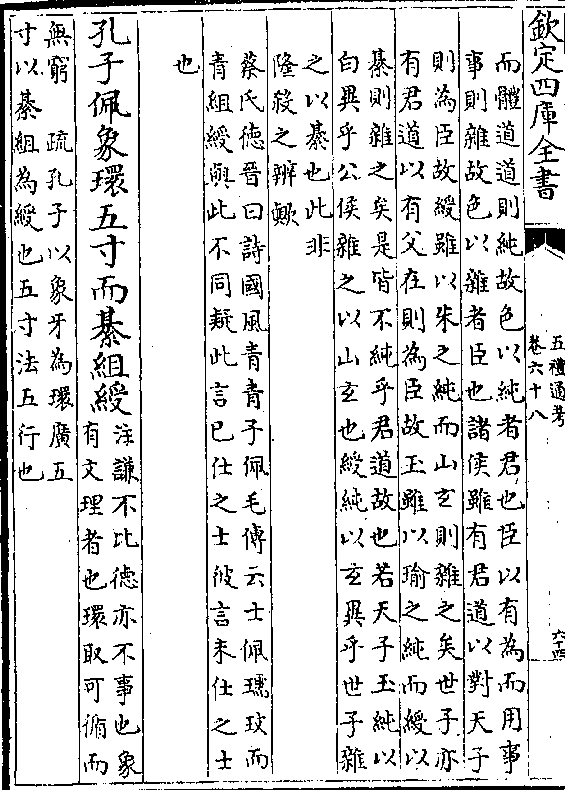 欽定四庫全書
五禮通考
卷六十八
六十四
而體道道則純故色以純者君也臣以有為而用事
事則雜故色以雜者臣也諸侯雖有君道以對天子
則為臣故綬雖以朱之純而山玄則雜之矣世子亦
有君道以有父在則為臣故玉雖以瑜之純而綬以
綦則雜之矣是皆不純乎君道故也若天子玉純以
白異乎公侯雜之以山玄也綬純以玄異乎世子雜
之以綦也此非
隆殺之辨歟
蔡氏德晉曰詩國風青青子佩毛傳云士佩瓀玟而
青組綬與此不同疑此言已仕之士彼言未仕之士
也
孔子佩象環五寸而綦組綬
注謙不比德亦不事也象
有文理者也環取可循而
無窮 疏孔子以象牙為環廣五
寸以綦組為綬也五寸法五行也